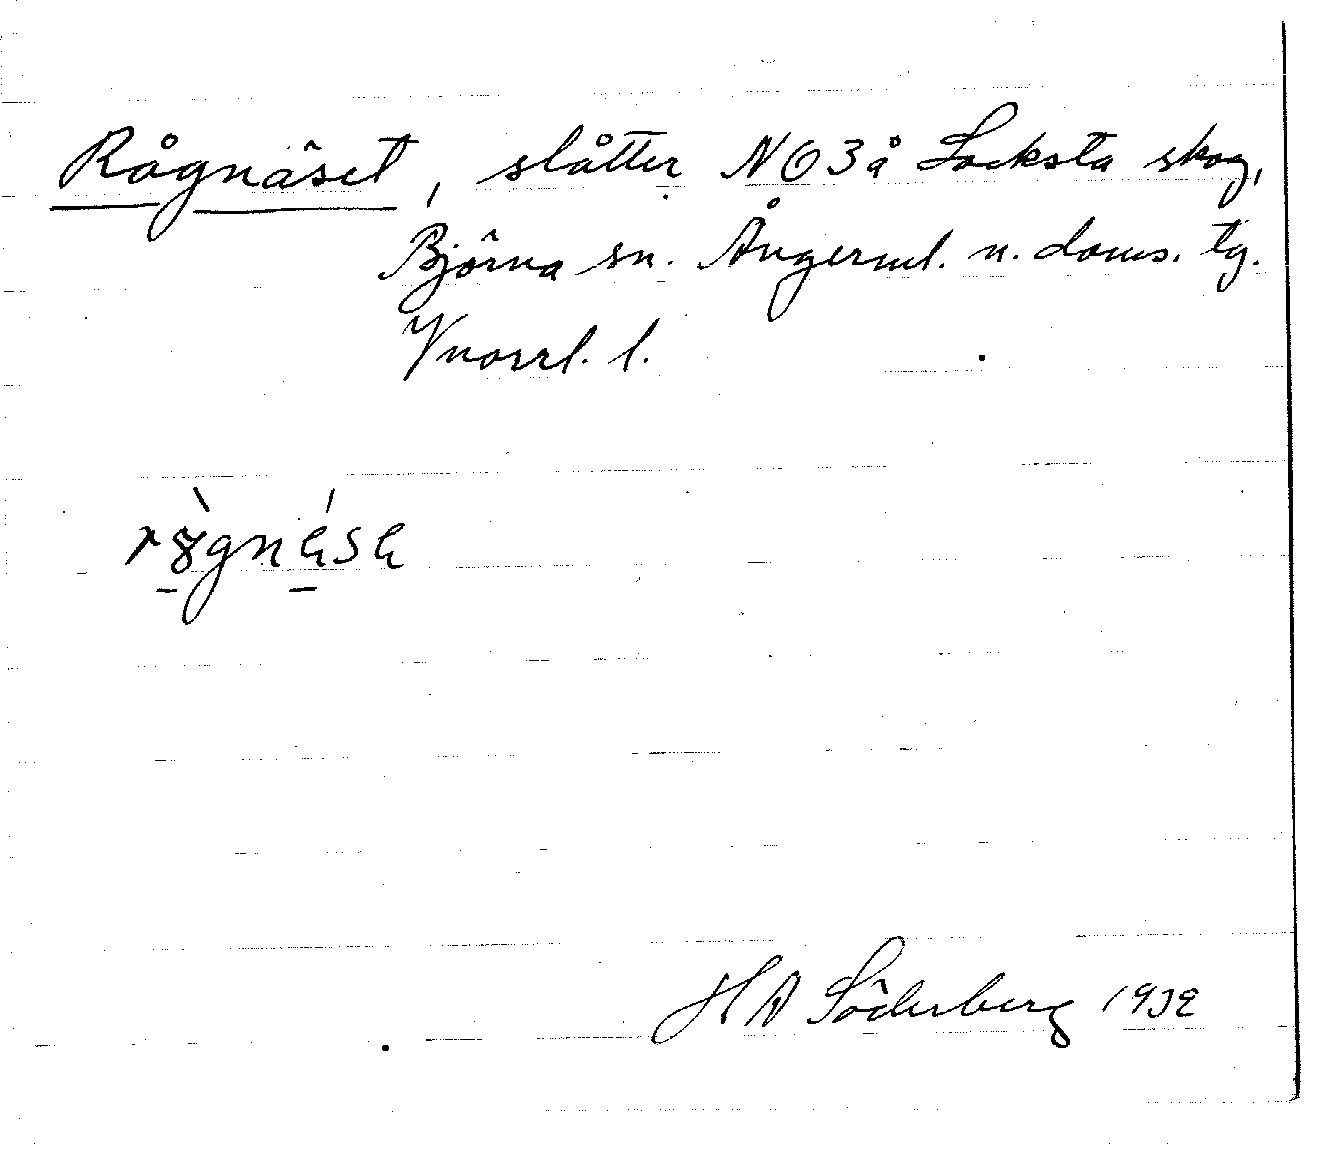 Rågnäset, slåtter NO3å Locksta skog,
Björna sn. Ångerml. n. doms. tg.
Vnorrl. l.
HA Söderberg 1932